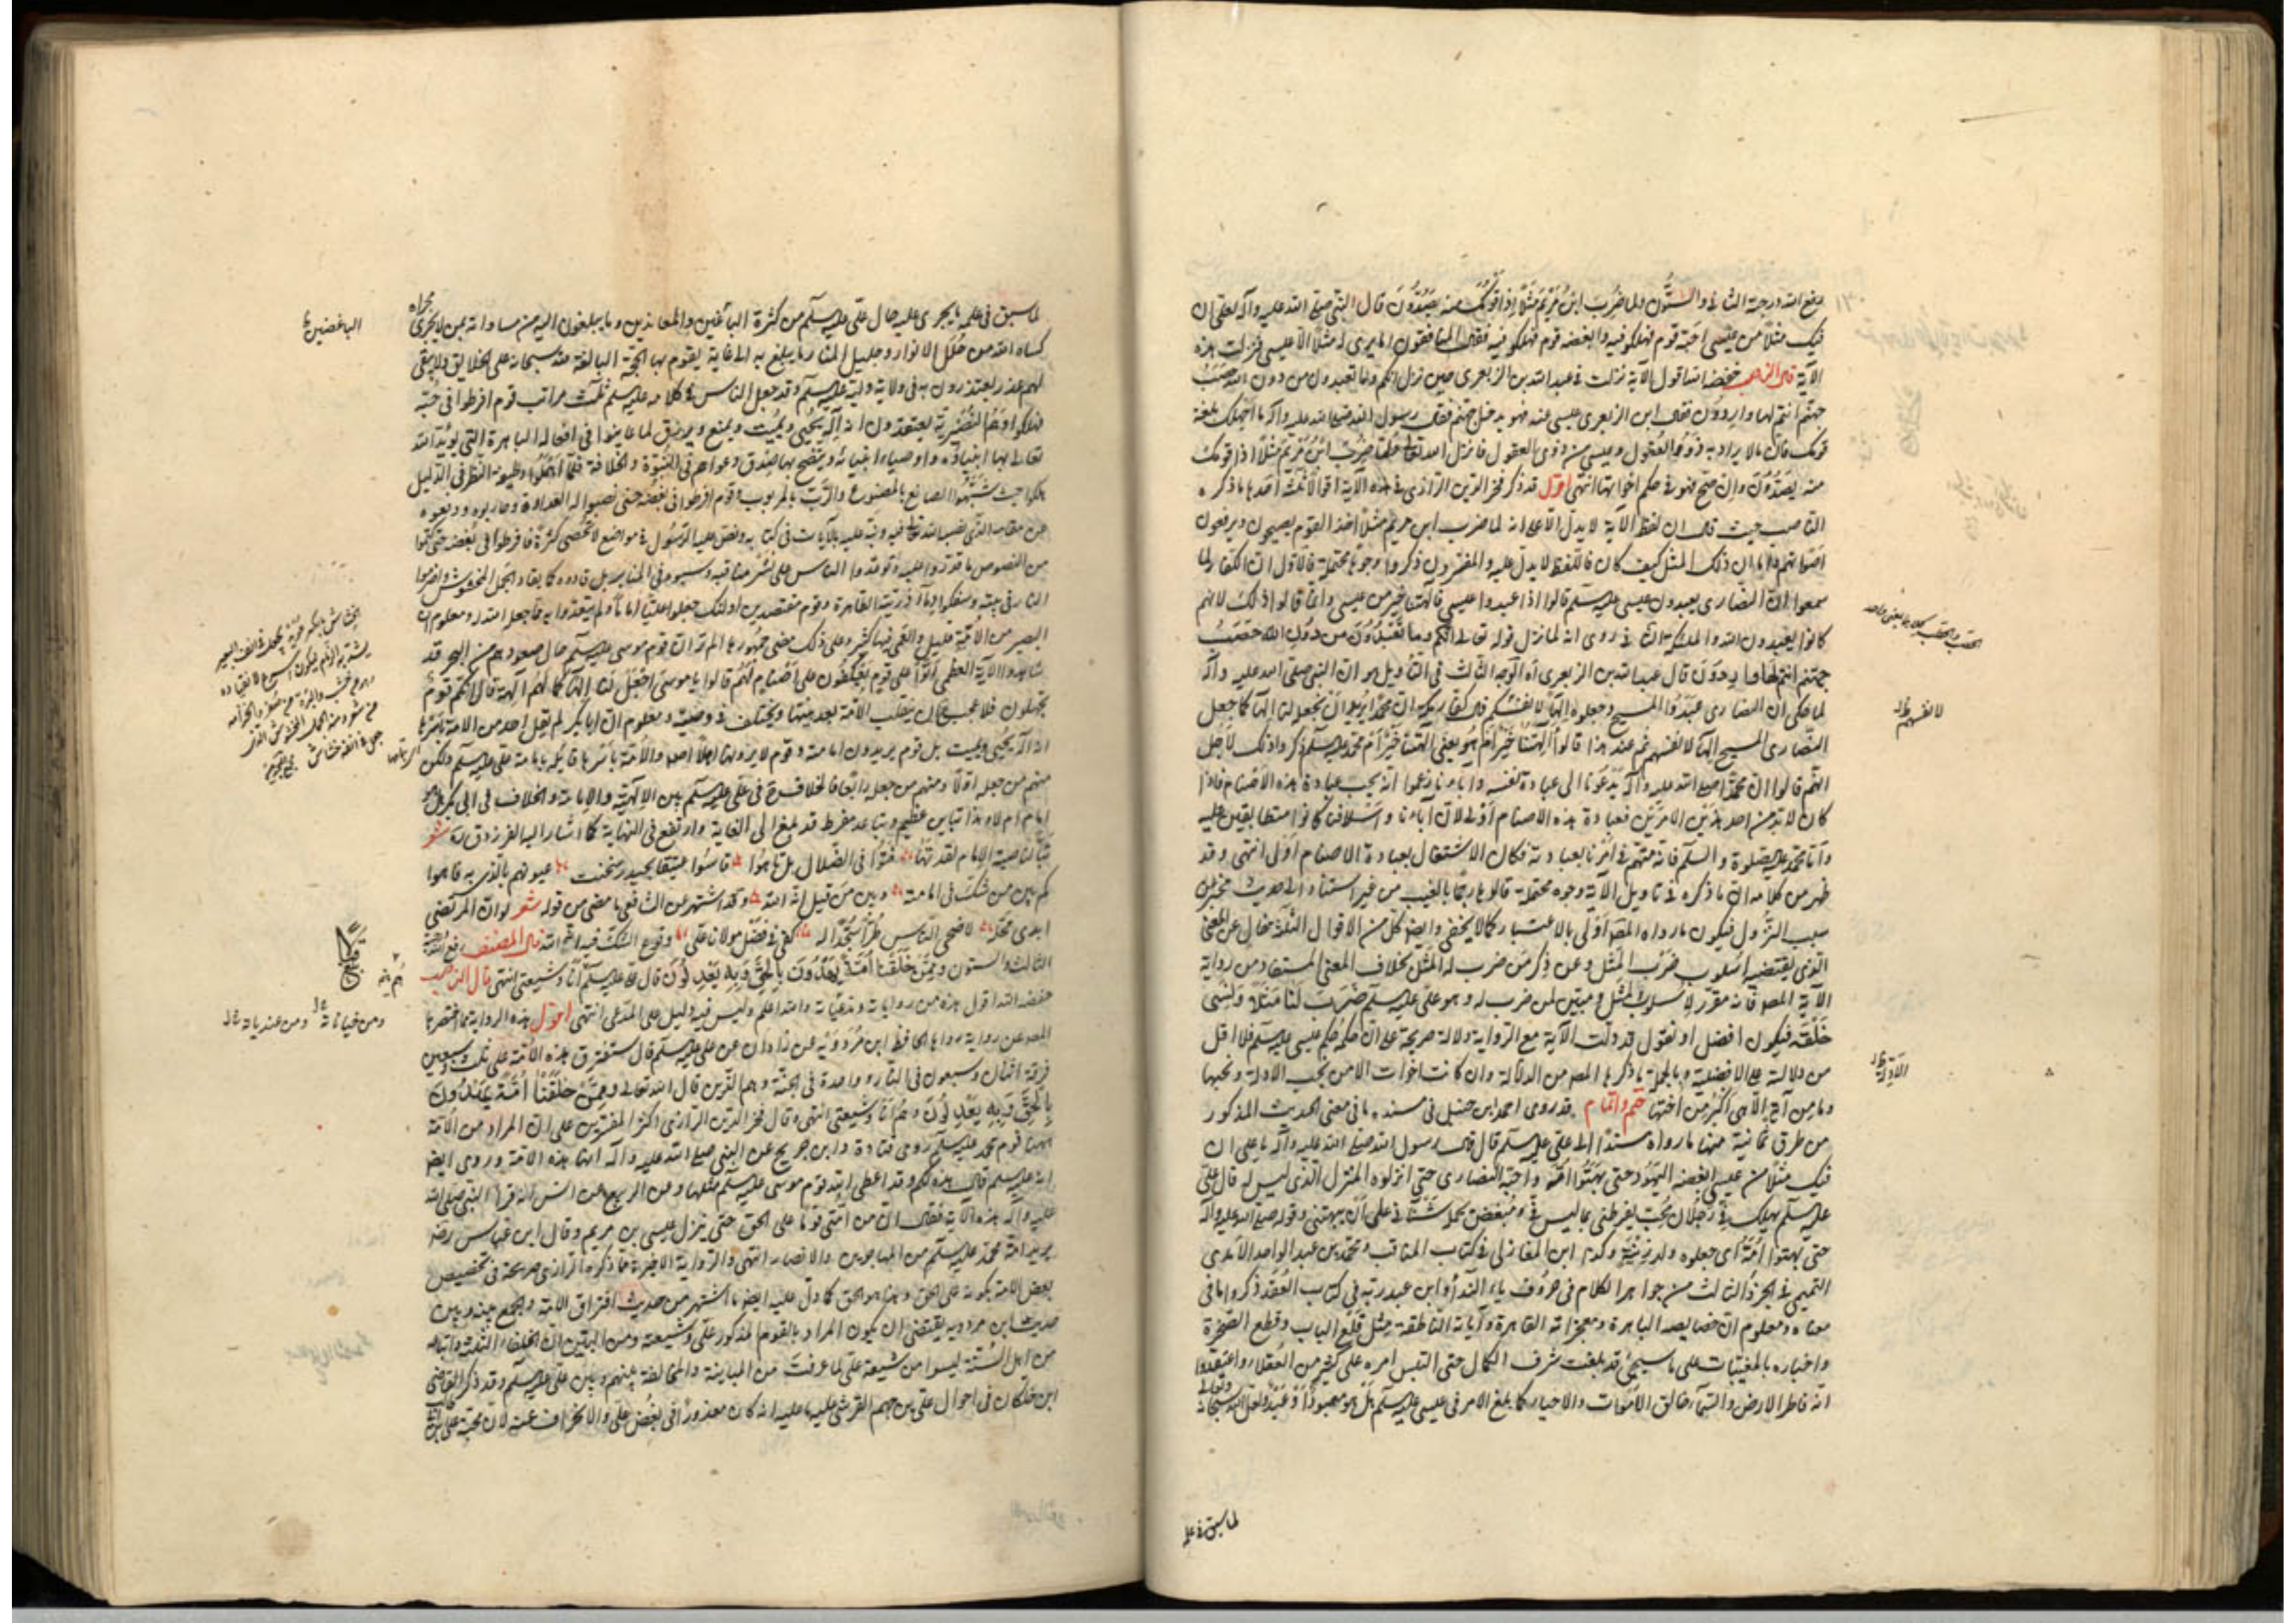 رفع الله درجته الثاني والستون ولما ضرب ابن مريم مثلا اذا قومك منه يصدون قال النبي صلى الله عليه وآله لعلي ان
فيك مثلا من عيسى احبه قوم فهلكوا فيه وابغضه قوم فهلكوا فيه فقال المنافقون اما يرى له مثلا الا عيسى فنزلت هذه
الآية قال الناصب خفضه الله اقول الآية نزلت في عبد الله بن الزبعرى حين نزل انكم وما تعبدون من دون الله حصب
جهنم انتم لها واردون فقال ابن الزبعرى عيسى عبد فهو يدخل جهنم فقال رسول الله صلى الله عليه وآله ما اجهلك بلغة
قومك فان ما لا يراد به ذوو العقول وعيسى من ذوي العقول فانزل الله تعالى ولما ضرب ابن مريم مثلا اذا قومك
منه يصدون وان صح فهو في حكم اخواتها انتهى اقول قد ذكر فخر الدين الرازي في هذه الآية اقوالا ثلثة احدها ما ذكره
الناصب حيث قال ان لفظ الآية لا يدل الا على انه لما ضرب ابن مريم مثلا اخذ القوم يصيحون ويرفعون
اصواتهم فاما ان ذلك المثل كيف كان فاللفظ لا يدل عليه والمفسرون ذكروا وجوها محتملة فالاول ان الكفار لما
سمعوا ان النصارى يعبدون عيسى عليه السلم قالوا اذا عبدوا عيسى فآلهتنا خير من عيسى وانما قالوا ذلك لانهم
كانوا يعبدون الله والملئكة الثاني روى انه لما نزل قوله تعالى انكم وما تعبدون من دون الله حصب
جهنم انتم لها واردون قال عبد الله بن الزبعرى اه الوجه الثالث في التأويل هو ان النبي صلى الله عليه وآله
لما حكى ان النصارى عبدوا المسيح وجعلوه الها لانفسهم قال كفار مكة ان محمدا يريد ان يجعل لنا الها كما جعل
النصارى المسيح الها لانفسهم ثم عند هذا قالوا آلهتنا خير ام هو يعني آلهتنا خير ام محمد عليه السلم ذكروا ذلك لاجل
انهم قالوا ان محمدا صلى الله عليه وآله يدعونا الى عبادة نفسه وآباؤنا زعموا انه يجب عبادة هذه الاصنام فاذا
كان لا بد من احد هذين الامرين فعبادة هذه الاصنام اولى لان آباءنا واسلافنا كانوا متطابقين عليه
واما محمد عليه الصلوة والسلم فانه متهم في امرنا بعبادته فكان الاشتغال بعبادة الاصنام اولى انتهى وقد
ظهر من كلامه ان ما ذكره في تأويل الآية وجوه محتملة قالوها رجما بالغيب من غير استناد الى حديث مخبر من
سبب النزول فيكون ما رواه المص اولى بالاعتبار كما لا يخفى وايضا كل من الاقوال الثلثة خال عن المعنى
الذي يقتضيه اسلوب ضرب المثل وعن ذكر من ضرب له المثل بخلاف المعنى المستفاد من رواية
الآية المص فانه مقرر لاسلوب المثل ومبين لمن ضرب له وهو علي عليه السلم ضرب لنا مثلا ونسي
خلقه فيكون افضل او نقول قد دلت الآية مع الرواية دلالة صريحة على ان حكمه حكم عيسى عليه السلم فلا اقل
من دلالته على الافضلية وبالجملة ما ذكرها المص من الدلالة وان كانت اخوات الا من نجب الادلة ونخبها
وما من آية الا هي اكبر من اختها ختم واتمام قد روى احمد ابن حنبل في مسنده ما في معنى الحديث المذكور
من طرق ثمانية منها ما رواه مسندا الى علي عليه السلم قال قال رسول الله صلى الله عليه وآله يا علي ان
فيك مثلا من عيسى ابغضه اليهود حتى بهتوا امه واحبه النصارى حتى انزلوه المنزل الذي ليس له قال علي
عليه السلم يهلك في رجلان محب يفرطني بما ليس في ومبغض يحمله شنآني على ان يبهتني وقوله صلى الله عليه وآله
حتى بهتوا امه اي جعلوه ولد زنية وكذا ابن المغازلي في كتاب المناقب ومحمد بن عبد الواحد الآمدي
التميمي في الجزء الثالث من جواهر الكلام في حروف ياء النداء وابن عبد ربه في كتاب العقد ذكروا ما في
معناه ومعلوم ان خصايصه الباهرة ومعجزاته القاهرة وآياته الناطقة مثل قلع الباب وقطع الصخرة
واخباره بالمغيبات على ما سيجيء قد بلغت شرف الكمال حتى التبس امره على كثير من العقلاء واعتقدوا
انه فاطر الارض والسماء خالق الاموات والاحياء كما بلغ الامر في عيسى عليه السلم هل هو معبود او عبد ولعل الله سبحانه وتعالى
لما سبق في علمه
لانفسهم ظ
الادلة ظ
لما سبق في علمه ما يجري عليه حال علي عليه السلم من كثرة الباغين والمعاندين وما يبلغون اليه من مساواته بمن لا يجري مجراه
كساه الله من حلل الانوار وجليل المنار ما يبلغ به الى غاية يقوم بها الحجة البالغة منه سبحانه على الخلايق ولا يبقى
لهم عذر يعتذرون به في ولاية وليه عليه السلم وقد جعل الناس في كلامه عليه السلم ثلث مراتب قوم افرطوا في حبه
فهلكوا وهم النصيرية يعتقدون انه اله يحيي ويميت ويمنع ويرزق لما عاينوا في افعاله الباهرة التي يؤيد الله
تعالى بها انبياؤه واوصياء انبيائه ويتضح بها صدق دعواهم في النبوة والخلافة فلما اهملوا وظيفة النظر في الدليل
هلكوا حيث شبهوا الصانع بالمصنوع والرب بالمربوب وقوم افرطوا في بغضه حتى نصبوا له العداوة وحاربوه ودفعوه
عن مقامه الذي نصبه الله تعالى فيه ونبه عليه بالآيات في كتابه ونص عليه الرسول في مواضع لا تحصى كثرة فافرطوا في بغضه حتى كتموا
من النصوص ما قدروا عليه وتوعدوا الناس على نشر مناقبه وسبوه في المنابر بل قادوه كما يقاد الجمل المخشوش واضرموا
النار في بيته وسفكوا دماء ذريته الطاهرة وقوم مقتصدين اولئك جعلوا عليا اماما ولم يتعدوا به ما جعل الله له ومعلوم ان
البصير من الامة قليل والعمي فيها كثير وعلى ذلك مضى جمهورها الم تر ان قوم موسى عليه السلم حال صعودهم من البحر قد
شاهدوا الآية العظمى اتوا على قوم يعكفون على اصنام لهم قالوا يا موسى اجعل لنا الها كما لهم آلهة قال انكم قوم
تجهلون فلا عجب ان ينقلب الامة بعد نبيها ويختلف في وصيه ومعلوم ان ابا بكر لم يقل احد من الامة باسرها
انه اله يحيي ويميت بل قوم يريدون امامته وقوم لا يرونها اهلا اصلا والامة باسرها قايلة بامامة علي عليه السلم ولكن
منهم من جعله اولا ومنهم من جعله رابعا فالخلاف في علي عليه السلم بين الالهية والامامة والخلاف في ابي بكر هل هو
امام ام لا وهذا تباين عظيم وتباعد مفرط قد بلغ الى الغاية وارتفع في النهاية كما اشار اليه الفرزدق ره شعر
تبا لناصبة الامام لقد تهافتوا في الضلال بل تاهوا قاسوا عتيقا بحيدر سخنت عيونهم بالذي به فاهوا
كم بين من شك في امامته وبين من قيل انه الله وقد اشتهر عن الشافعي ما مضى من قوله شعر لو ان المرتضى
ابدى محله لاضحى الناس طرا سجدا له كفى في فضل مولانا علي وقوع الشك فيه انه الله قال المصنف رفع الله درجته
الثالث والستون وممن خلقنا امة يهدون بالحق وبه يعدلون قال علي عليه السلم هم انا وشيعتي انتهى قال الناصب
خفضه الله اقول هذه من روايات ومدعيات والله اعلم وليس فيه دليل على المدعى انتهى اقول هذه الرواية مما اختصرها
المص عن رواية رواها الحافظ ابن مردويه عن زاذان عن علي عليه السلم قال ستفترق هذه الامة على ثلث وسبعين
فرقة اثنان وسبعون في النار وواحدة في الجنة وهم الذين قال الله تعالى وممن خلقنا امة يهدون
بالحق وبه يعدلون وهم انا وشيعتي انتهى وقال فخر الدين الرازي اكثر المفسرين على ان المراد من الامة
ههنا قوم محمد عليه السلم روى قتادة وابن جريج عن النبي صلى الله عليه وآله انها هذه الامة وروى ايضا
انه عليه السلم قال هذه لكم وقد اعطى الله قوم موسى عليه السلم مثلها وعن الربيع عن انس انه قرأ النبي صلى الله
عليه وآله هذه الآية فقال ان من امتي قوما على الحق حتى ينزل عيسى بن مريم وقال ابن عباس رضه
يريد امة محمد عليه السلم من المهاجرين والانصار انتهى والرواية الاخيرة مما ذكره الرازي صريحة في تخصيص
بعض الامة بكونه على الحق وهذا هو الحق كما دل عليه ايضا ما اشتهر من حديث افتراق الامة والجمع بينه وبين
حديث ابن مردويه يقتضي ان يكون المراد بالقوم المذكور علي وشيعته ومن البين ان الخلفاء الثلثة واتباعه
من اهل السنة ليسوا من شيعة علي لما عرفت من المباينة والمخالفة بينهم وبين علي عليه السلم وقد ذكر القاضي
ابن خلكان في احوال علي بن جهم القرشي عليه ما عليه انه كان معذورا في بغض علي والانحراف عنه لان محبة علي
الباغضين ظ
بلغ قبالا
ومن خياناته ظ ومن عندياته ظ